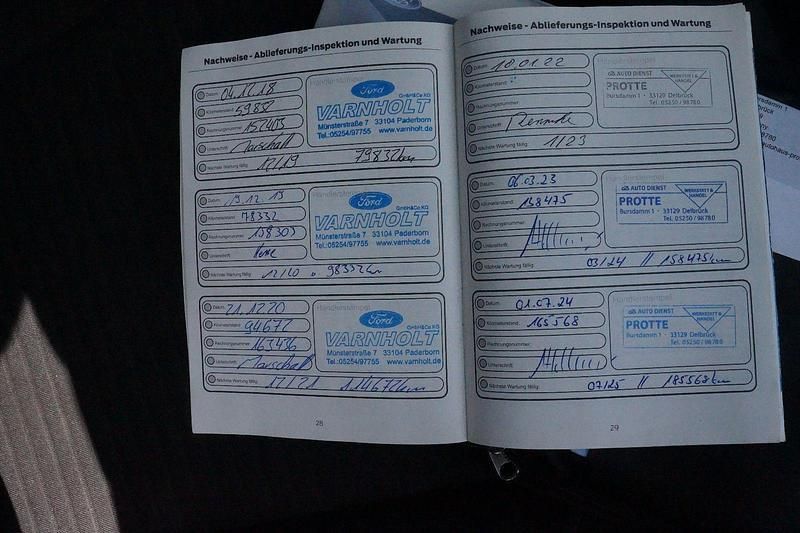 Nachweise - Ablieferungs-Inspektion und Wartung
Datum: 04.12.18
Kilometerstand: 59832
Rechnungsnummer: 152403
Unterschrift: Marschall
Nächste Wartung fällig: 12/19 79832km
Ford
GmbH&Co.KG
VARNHOLT
Münsterstraße 7 33104 Paderborn
Tel.:05254/97755 www.varnholt.de
Datum: 19.12.19
Kilometerstand: 78332
Rechnungsnummer: 158303
Unterschrift:
Nächste Wartung fällig: 12/20 o. 98332km
Händlerstempel
Ford
GmbH&Co.KG
VARNHOLT
Münsterstraße 7 33104 Paderborn
Tel.:05254/97755 www.varnholt.de
Datum: 21.12.20
Kilometerstand: 94672
Rechnungsnummer: 163436
Unterschrift: Marschall
Nächste Wartung fällig: 12/21 114672km
Händlerstempel
Ford
GmbH&Co.KG
VARNHOLT
Münsterstraße 7 33104 Paderborn
Tel.:05254/97755 www.varnholt.de
28
Nachweise - Ablieferungs-Inspektion und Wartung
Datum: 18.01.22
Kilometerstand:
Rechnungsnummer:
Unterschrift:
Nächste Wartung fällig: 1/23
Händlerstempel
AUTO DIENST
WERKSTATT &
HANDEL
PROTTE
Bursdamm 1 · 33129 Delbrück
Tel. 05250 / 98780
Datum: 06.03.23
Kilometerstand: 138475
Rechnungsnummer:
Unterschrift:
Nächste Wartung fällig: 03/24 // 158475km
AUTO DIENST
WERKSTATT &
HANDEL
PROTTE
Bursdamm 1 · 33129 Delbrück
Tel. 05250 / 98780
Datum: 01.07.24
Kilometerstand: 165568
Rechnungsnummer:
Unterschrift:
Nächste Wartung fällig: 07/25 // 185568km
Händlerstempel
AUTO DIENST
WERKSTATT &
HANDEL
PROTTE
Bursdamm 1 · 33129 Delbrück
Tel. 05250 / 98780
29